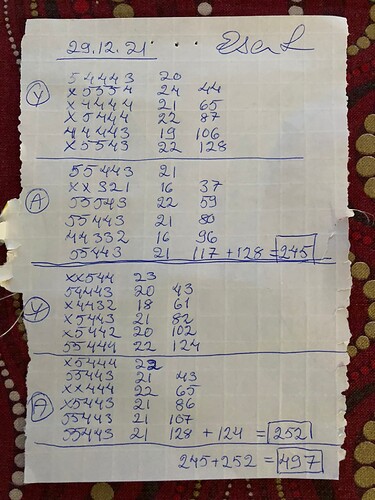 29.12.21
54443 20
x5554 24 44
Y
x4444 21 65
x5444 22 87
44443 19 106
x5543 22 128
55443 21
xx321 16 37
A
55543 22 59
55443 21 80
44332 16 96
55443 21 117 +128 = 245
xx544 23
54443 20 43
Y
x4432 18 61
x5443 21 82
x5442 20 102
55444 22 124
x5444 22
55443 21 43
xx444 22 65
A
x5443 21 86
55443 21 107
55443 21 128 + 124 = 252
245+252 = 497